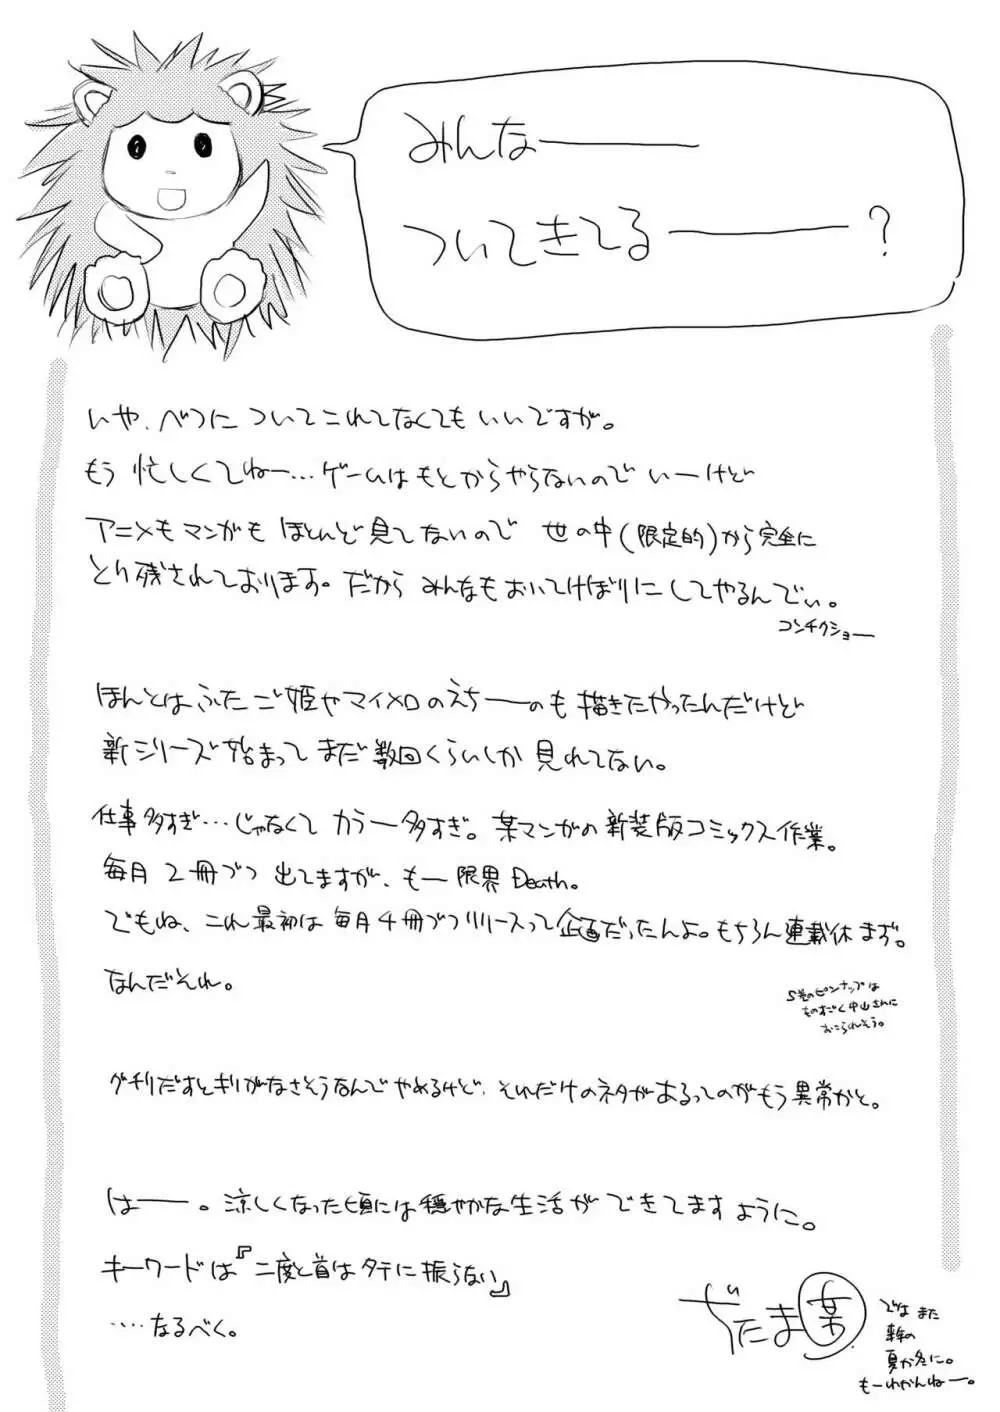 みんなーーー
ついてきてるーーー?
いや、べつについてこれてなくてもいいですが。
もう忙しくてねー…ゲームはもとからやらないのでいーけど
アニメもマンガもほとんど見てないので世の中(限定的)から完全に
とり残されております。だからみんなもおいてけぼりにしてやるんでぃ。
コンチクショー
ほんとはふたご姫やマイメロのえちーーのも描きたかったんだけど
新シリーズ始まってまだ数回くらいしか見れてない。
仕事多すぎ…じゃなくてカラー多すぎ。某マンガの新装版コミックス作業。
毎月2冊づつ出てますが、もー限界Death。
でもね、これ最初は毎月4冊づつリリースって企画だったんよ。もちろん連載休まず。
なんだそれ。
5巻のピンナップは
ものすごく中山さんに
おこられそう。
グチりだすとキリがなさそうなんでやめるけど、それだけのネタがあるってのがもう異常かと。
はーー。涼しくなった頃には穏やかな生活ができてますように。
キーワードは『二度と首はタテに振らない』
‥‥なるべく。
ぢたま某
ではまた
来年の
夏か冬に。
もーわかんねー。